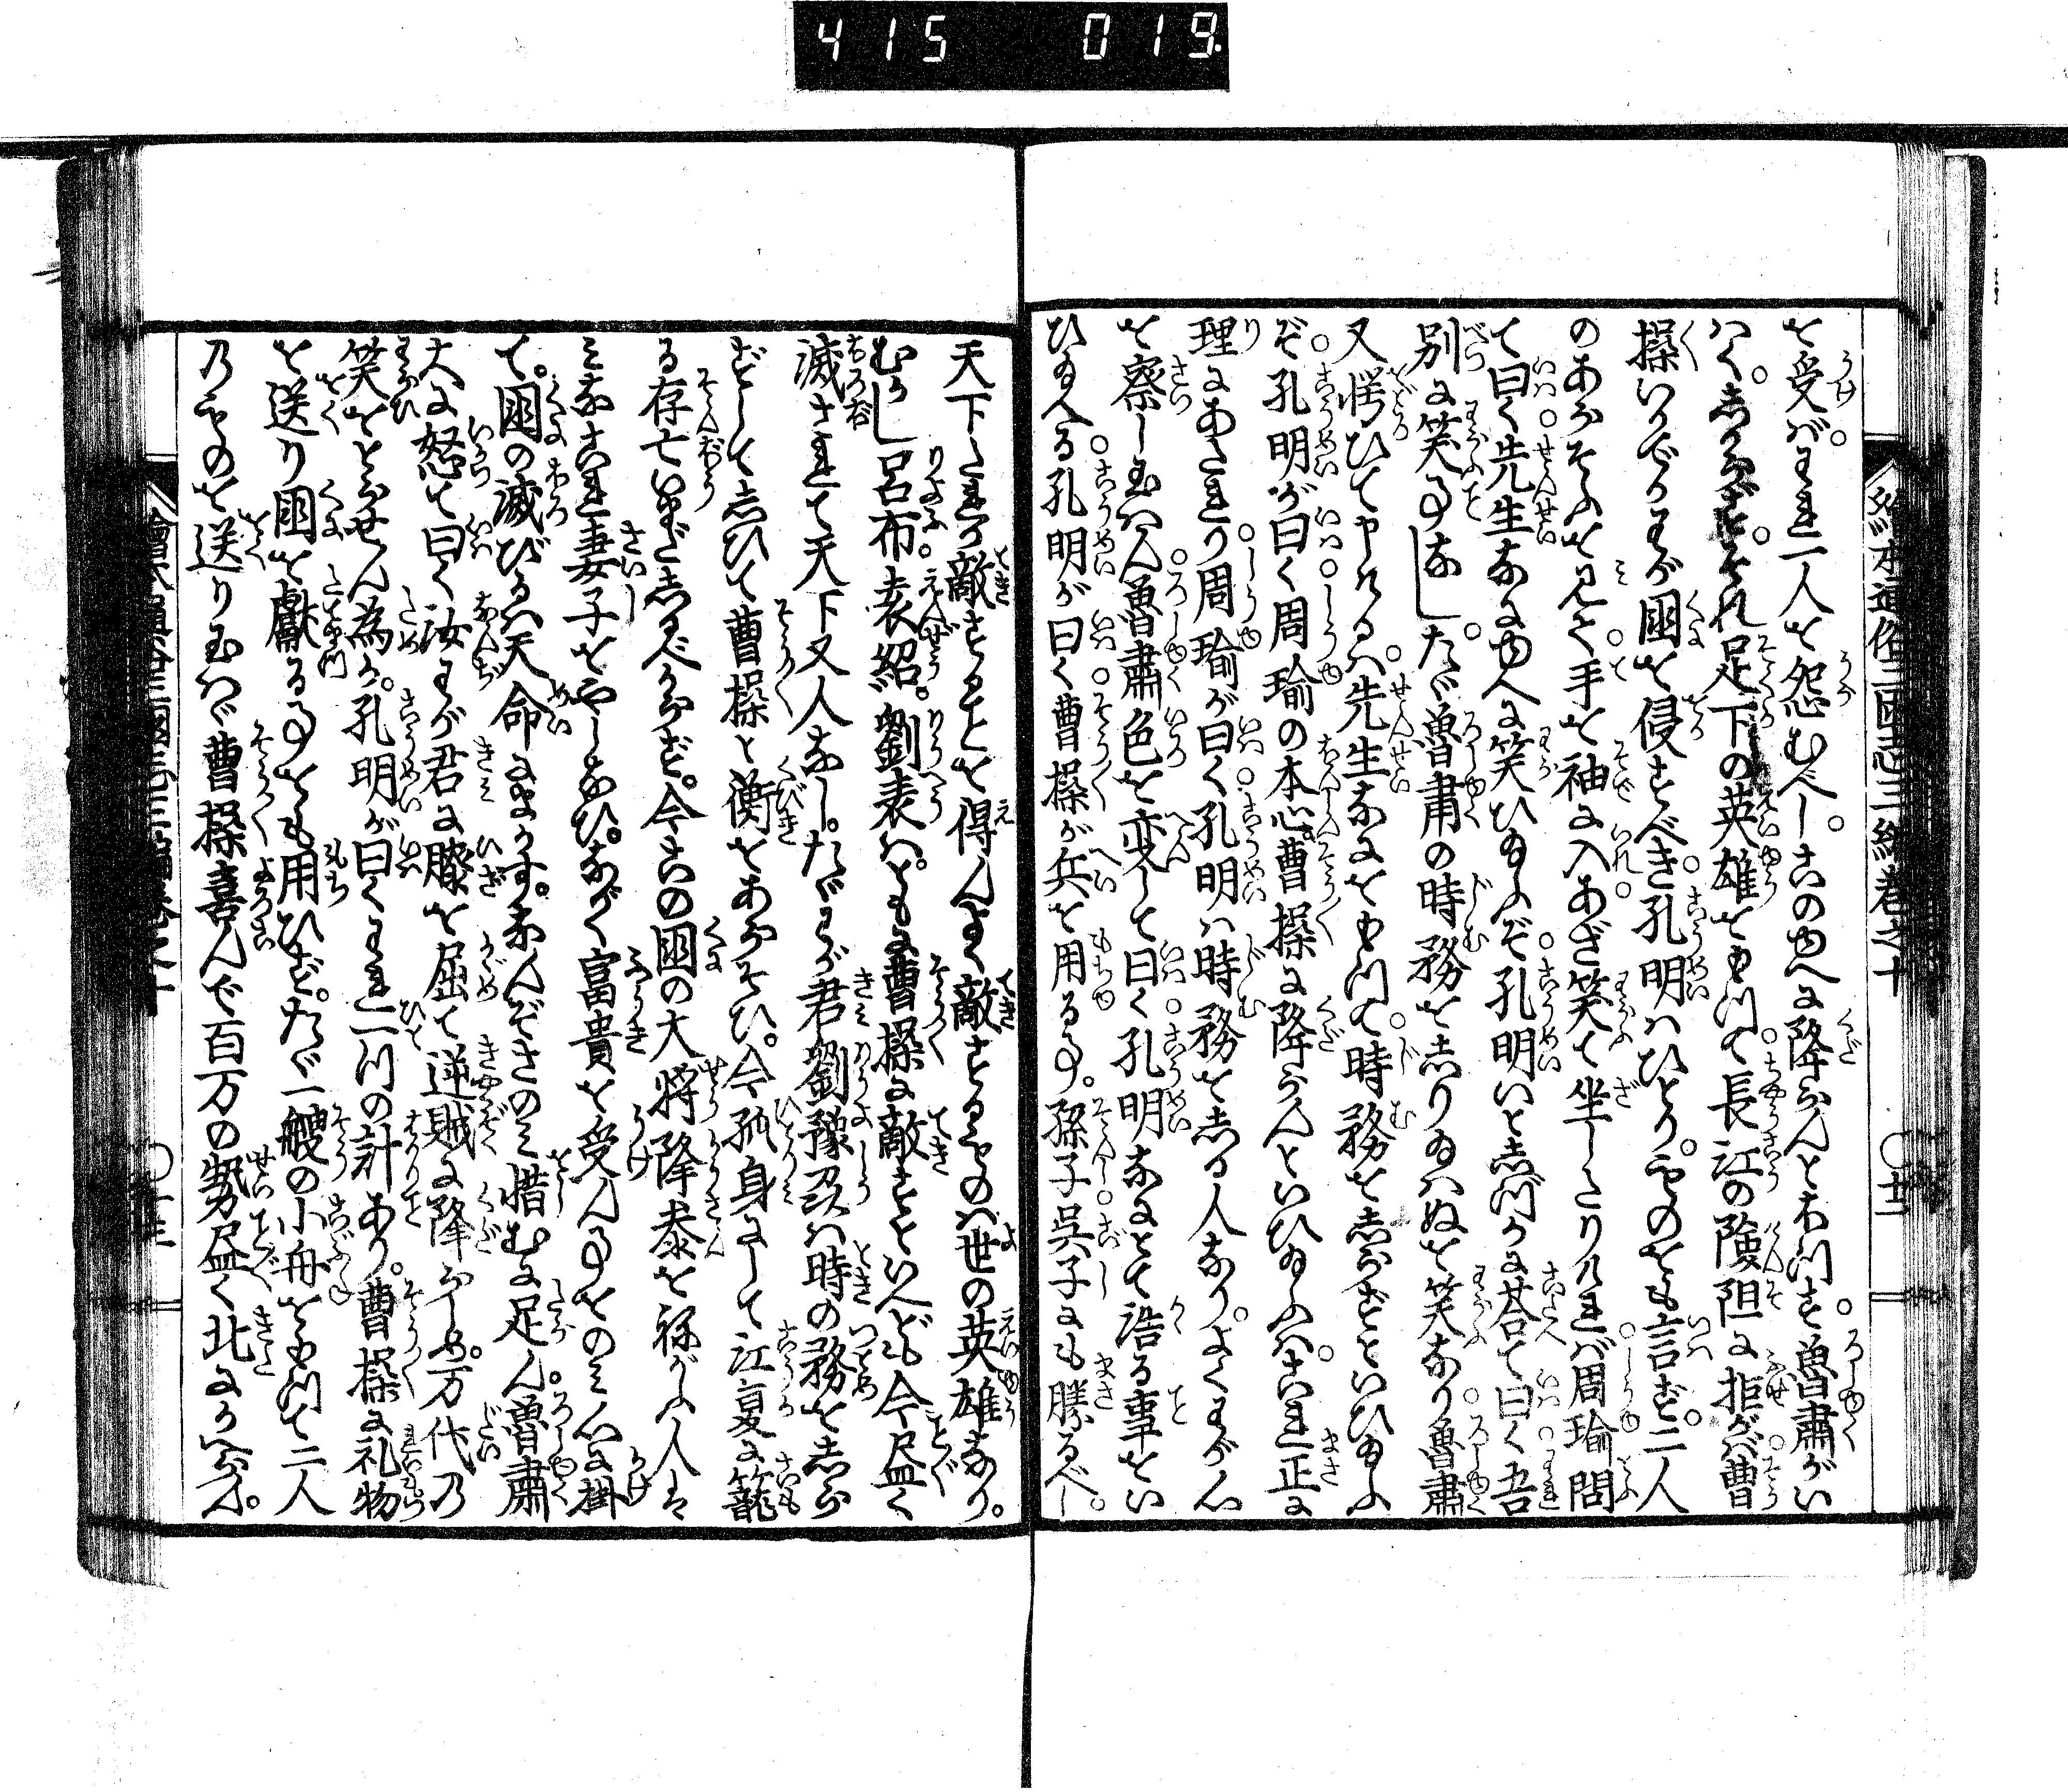 415 019.
絵本通俗三国志三編巻之十
を受バ。われ一人を怨むべし。このゆへに降らんとおもつて。魯肅がい
はく。しからず。それ足下の英雄をもつて。長江の険阻に拒がバ。曹
操いかでかわが國を侵すべき。孔明はひとり。ものをも言ず。二人
のあらそふを見て。手を袖に入あざ笑て坐したりけれバ。周瑜問
て曰く。先生なにゆへに笑ひ給ふぞ。孔明いと志づかに荅て曰く。吾
別に笑ふ事なし。たゞ魯肅の時務を志り給はぬを笑なり。魯肅
又愕ひて申けるハ。先生なにをもつて。時務を志らずといひ給ふ
ぞ。孔明が曰く。周瑜の本心曹操に降らんといひ給ふハ。これ正に
理にあたれり。周瑜が曰く。孔明ハ時務を志る人なり。よくわが心
を察し玉へん。魯肅色を変じて曰く。孔明なにとて詭る事をい
ひ給へる。孔明が曰く。曹操が兵を用る事。孫子。呉子にも勝るべし。
天下たれか敵することを得んよく敵するものハ世の英雄なり。
むかし呂布。袁紹。劉表ハ。ともに曹操に敵すといへども今尽く
滅されて天下又人なし。たゞわが君劉豫州ハ時の務を志ら
ずして志ひて曹操と衡をあらそひ。今孤身にして江夏に籠
る存亡いまだ志るべからず。今この國の大将降参を祢がふ人は
みなこれ妻子をやしなひ。ながく富貴を受ん事をのみ心に掛
て。國の滅びるハ天命にまかす。なんぞさのみ惜むに足ん。魯肅
大に怒て曰く汝わが君に膝を屈て逆賊に降らしめ。万代の
笑をとらせん為か。孔明が曰くわれ一つの計あり。曹操に礼物
を送り國を獻る事をも用ひず。たゞ一艘の小舟をもつて二人
のものを送り玉ハゞ曹操喜んで百万の勢尽く北にかへらん。